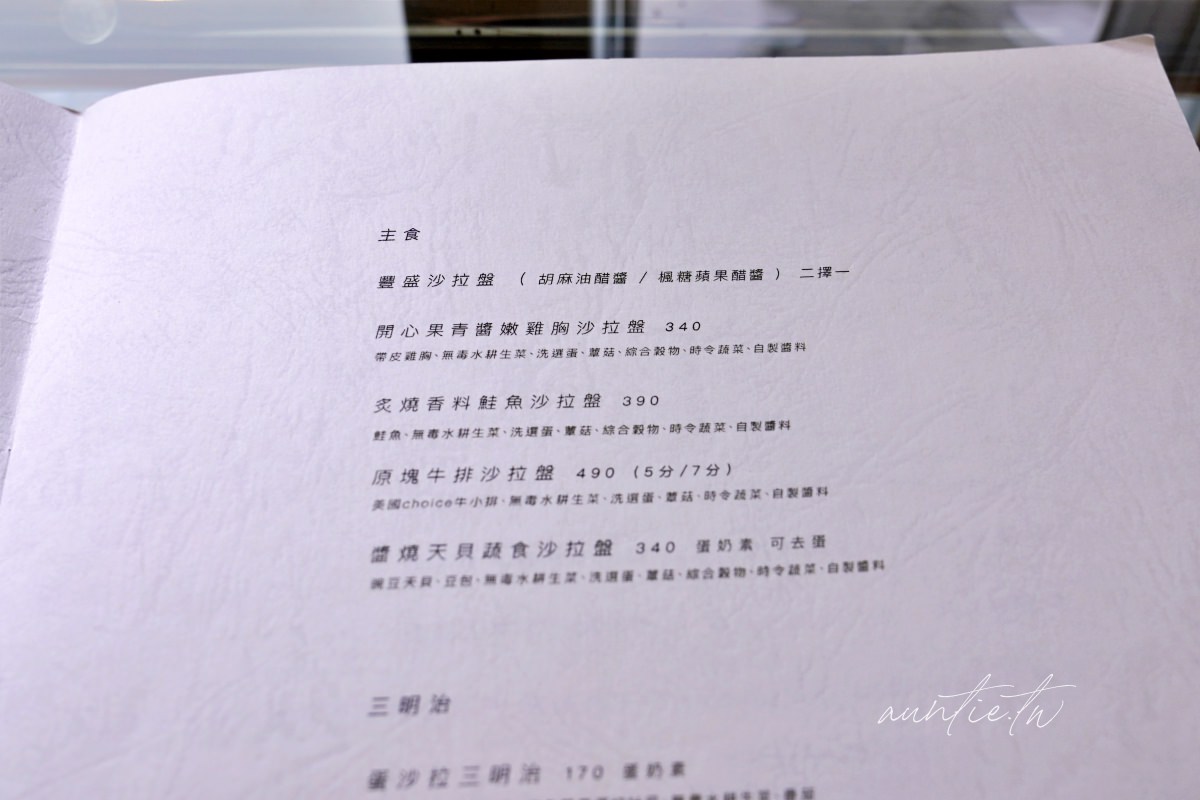 主食
豐盛沙拉盤 （ 胡麻油醋醬 / 楓糖蘋果醋醬 ） 二擇一
開心果青醬嫩雞胸沙拉盤 340
帶皮雞胸、無毒水耕生菜、洗選蛋、蕈菇、綜合穀物、時令蔬菜、自製醬料
炙燒香料鮭魚沙拉盤 390
鮭魚、無毒水耕生菜、洗選蛋、蕈菇、綜合穀物、時令蔬菜、自製醬料
原塊牛排沙拉盤 490 （5分/7分）
美國choice牛小排、無毒水耕生菜、洗選蛋、蕈菇、時令蔬菜、自製醬料
醬燒天貝蔬食沙拉盤 340 蛋奶素 可去蛋
豌豆天貝、豆包、無毒水耕生菜、洗選蛋、蕈菇、綜合穀物、時令蔬菜、自製醬料
三明治
auntie.tw
蛋沙拉三明治 170 蛋奶素
無毒水耕生菜、